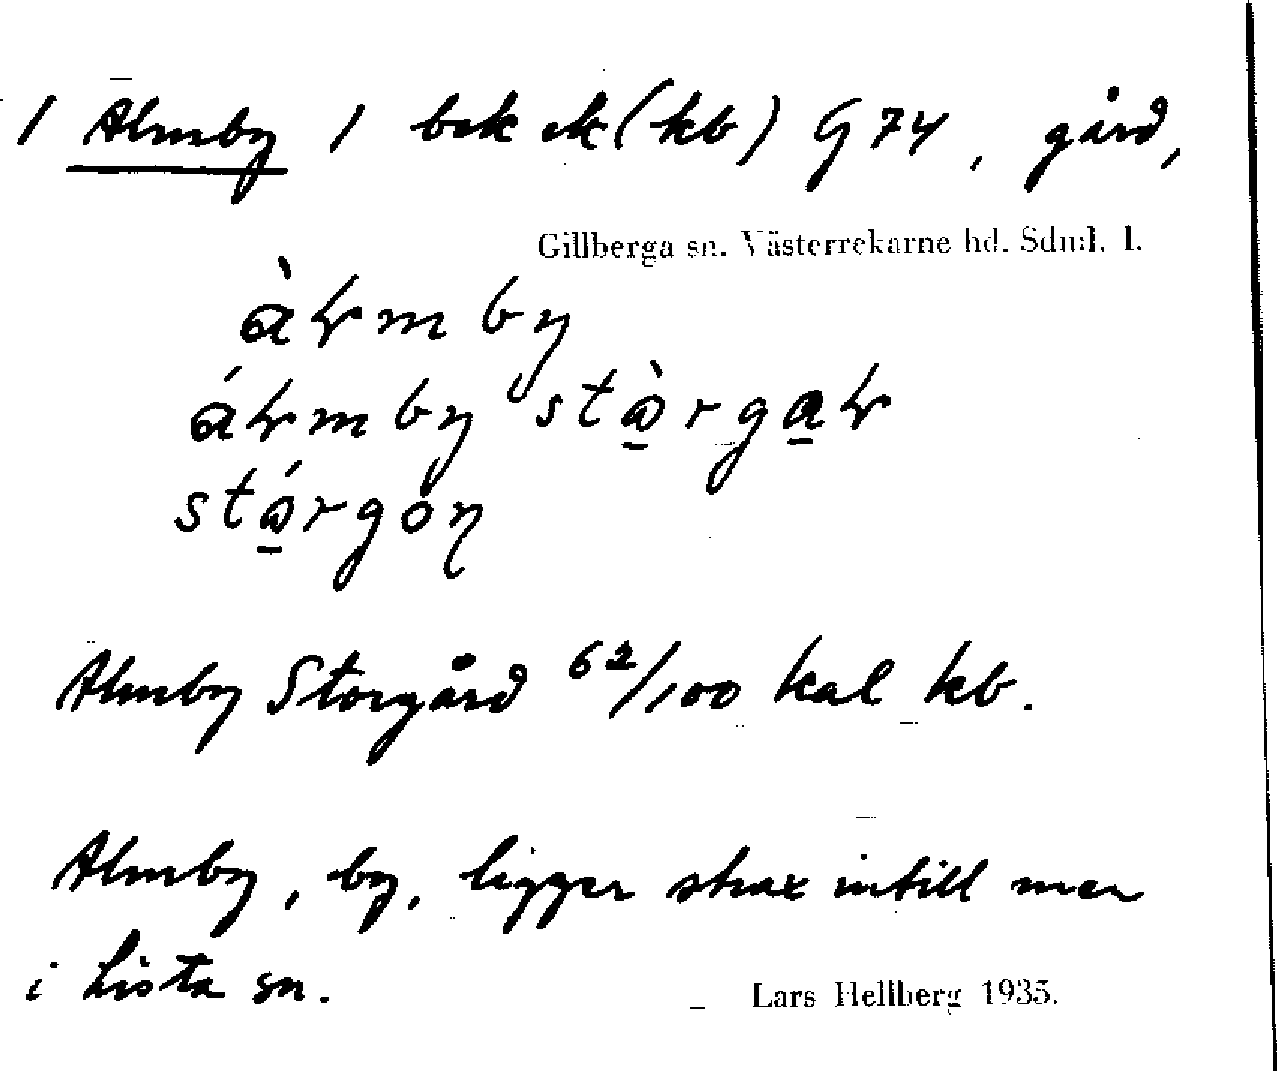 / Almby / bek ek (kb) G 74, gård,
Gillberga sn. Västerrekarne hd. Sdml. l.
àlmby
álmby stòrgał
stórgon
Almby Storgård 62/100 kal kb.
Almby, by, ligger strax intill men
i Lista sn.
Lars Hellberg 1935.